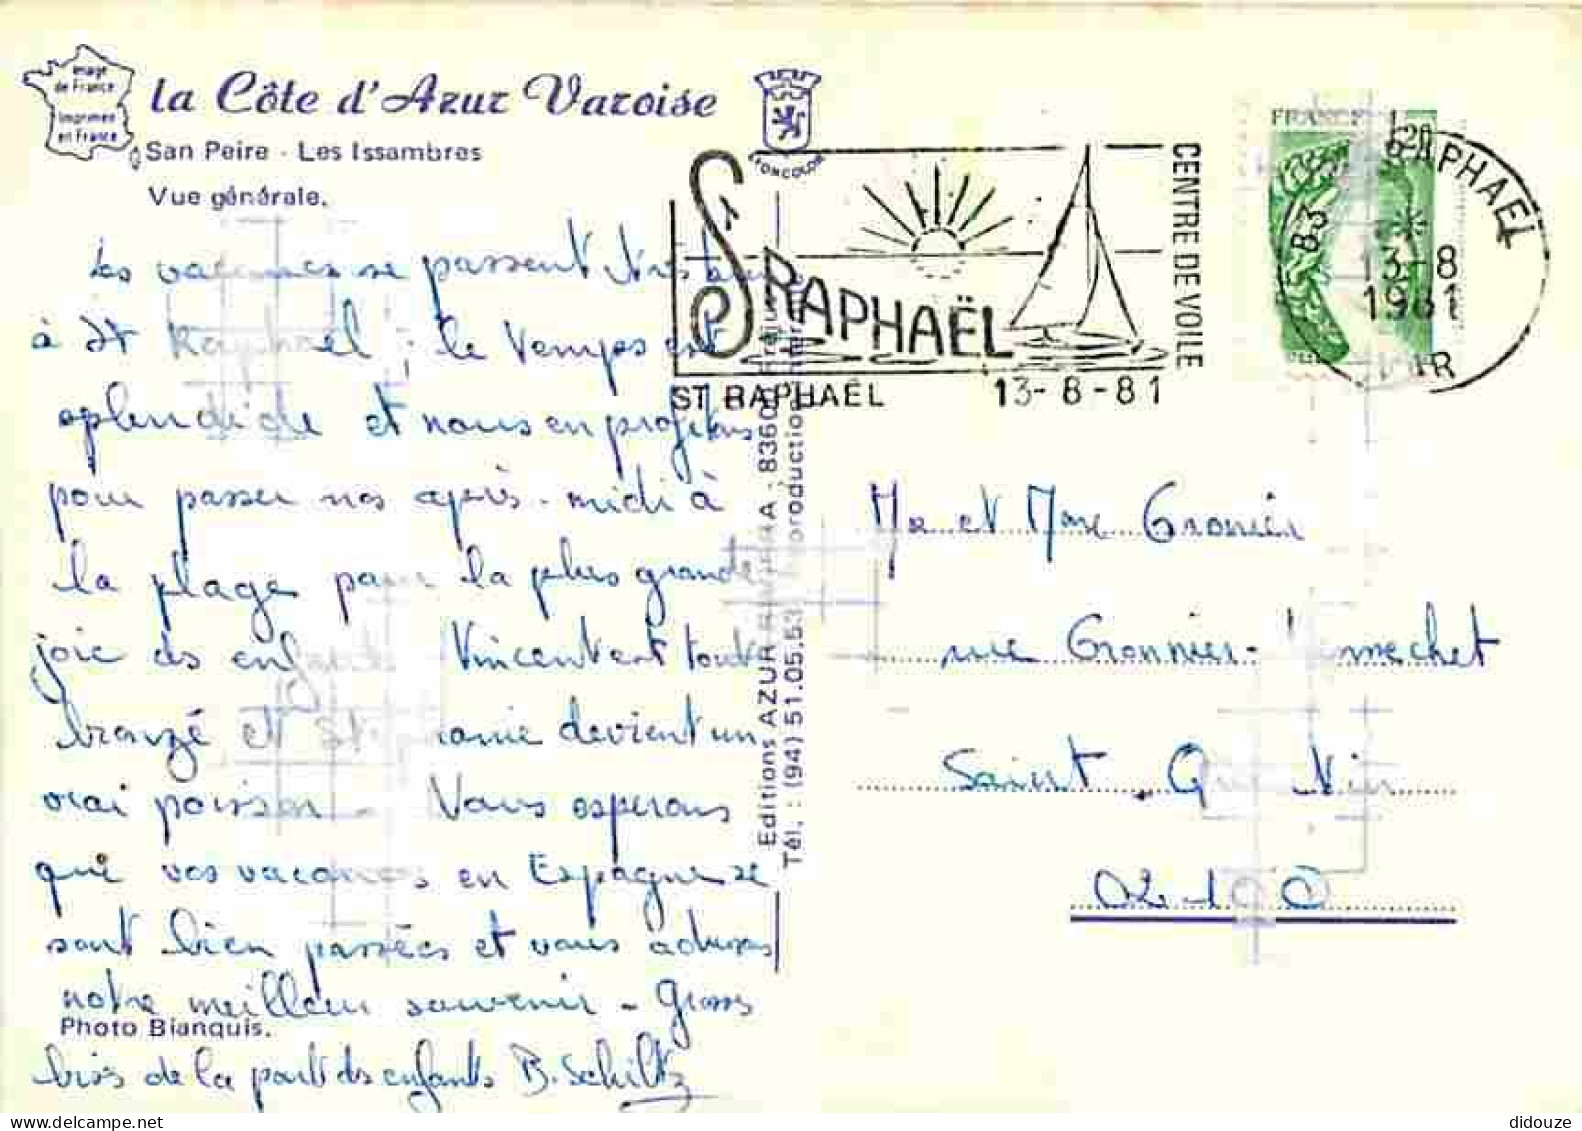 Image
de France
Imprimée
en France
la Côte d'Azur Varoise
San Peire - Les Issambres
Vue générale.
YONCOLOR
Les vacances se passent
à St Raphaël, le temps est
splendide et nous en profitons
pour passer nos après-midi à
la plage pour la plus grande
joie des enfants Vincent est tout
bronzé et Stéphanie devient un
vrai poisson - Nous espérons
que vos vacances en Espagne se
sont bien passées et vous adressons
notre meilleur souvenir - Grosses
bises de la part des enfants B. Schiltz
Photo Bianquis.
Editions AZUR
Tél. : (94) 51.05.53
ST RAPHAËL
CENTRE DE VOILE
ST RAPHAËL 13-8-81
FRANCE 1,20
RAPHAEL
83
13-8
1981
VAR
Mr et Mme Gronier
rue Gronnier-
Saint-Quentin
02100
didouze